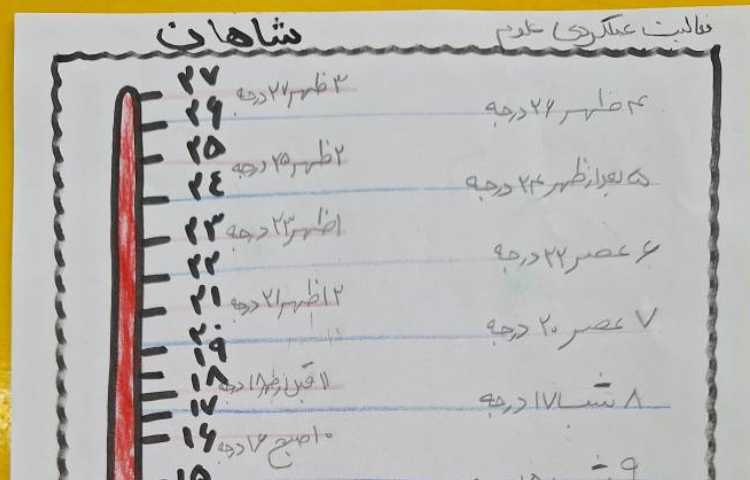 فعالیت عملکردی علوم
شاهان
۲۷
۳ ظهر ۲۷ درجه
۴ ظهر ۲۶ درجه
۲۶
۲۵
۲ ظهر ۲۵ درجه
۵ بعدازظهر ۲۴ درجه
۲۴
۲۳
۱ ظهر ۲۳ درجه
۶ عصر ۲۲ درجه
۲۲
۲۱
۱۲ ظهر ۲۱ درجه
۷ عصر ۲۰ درجه
۲۰
۱۹
۱۸
۱۱ قبل ازظهر ۱۸ درجه
۸ شب ۱۷ درجه
۱۷
۱۶
۱۰ صبح ۱۶ درجه
۱۵